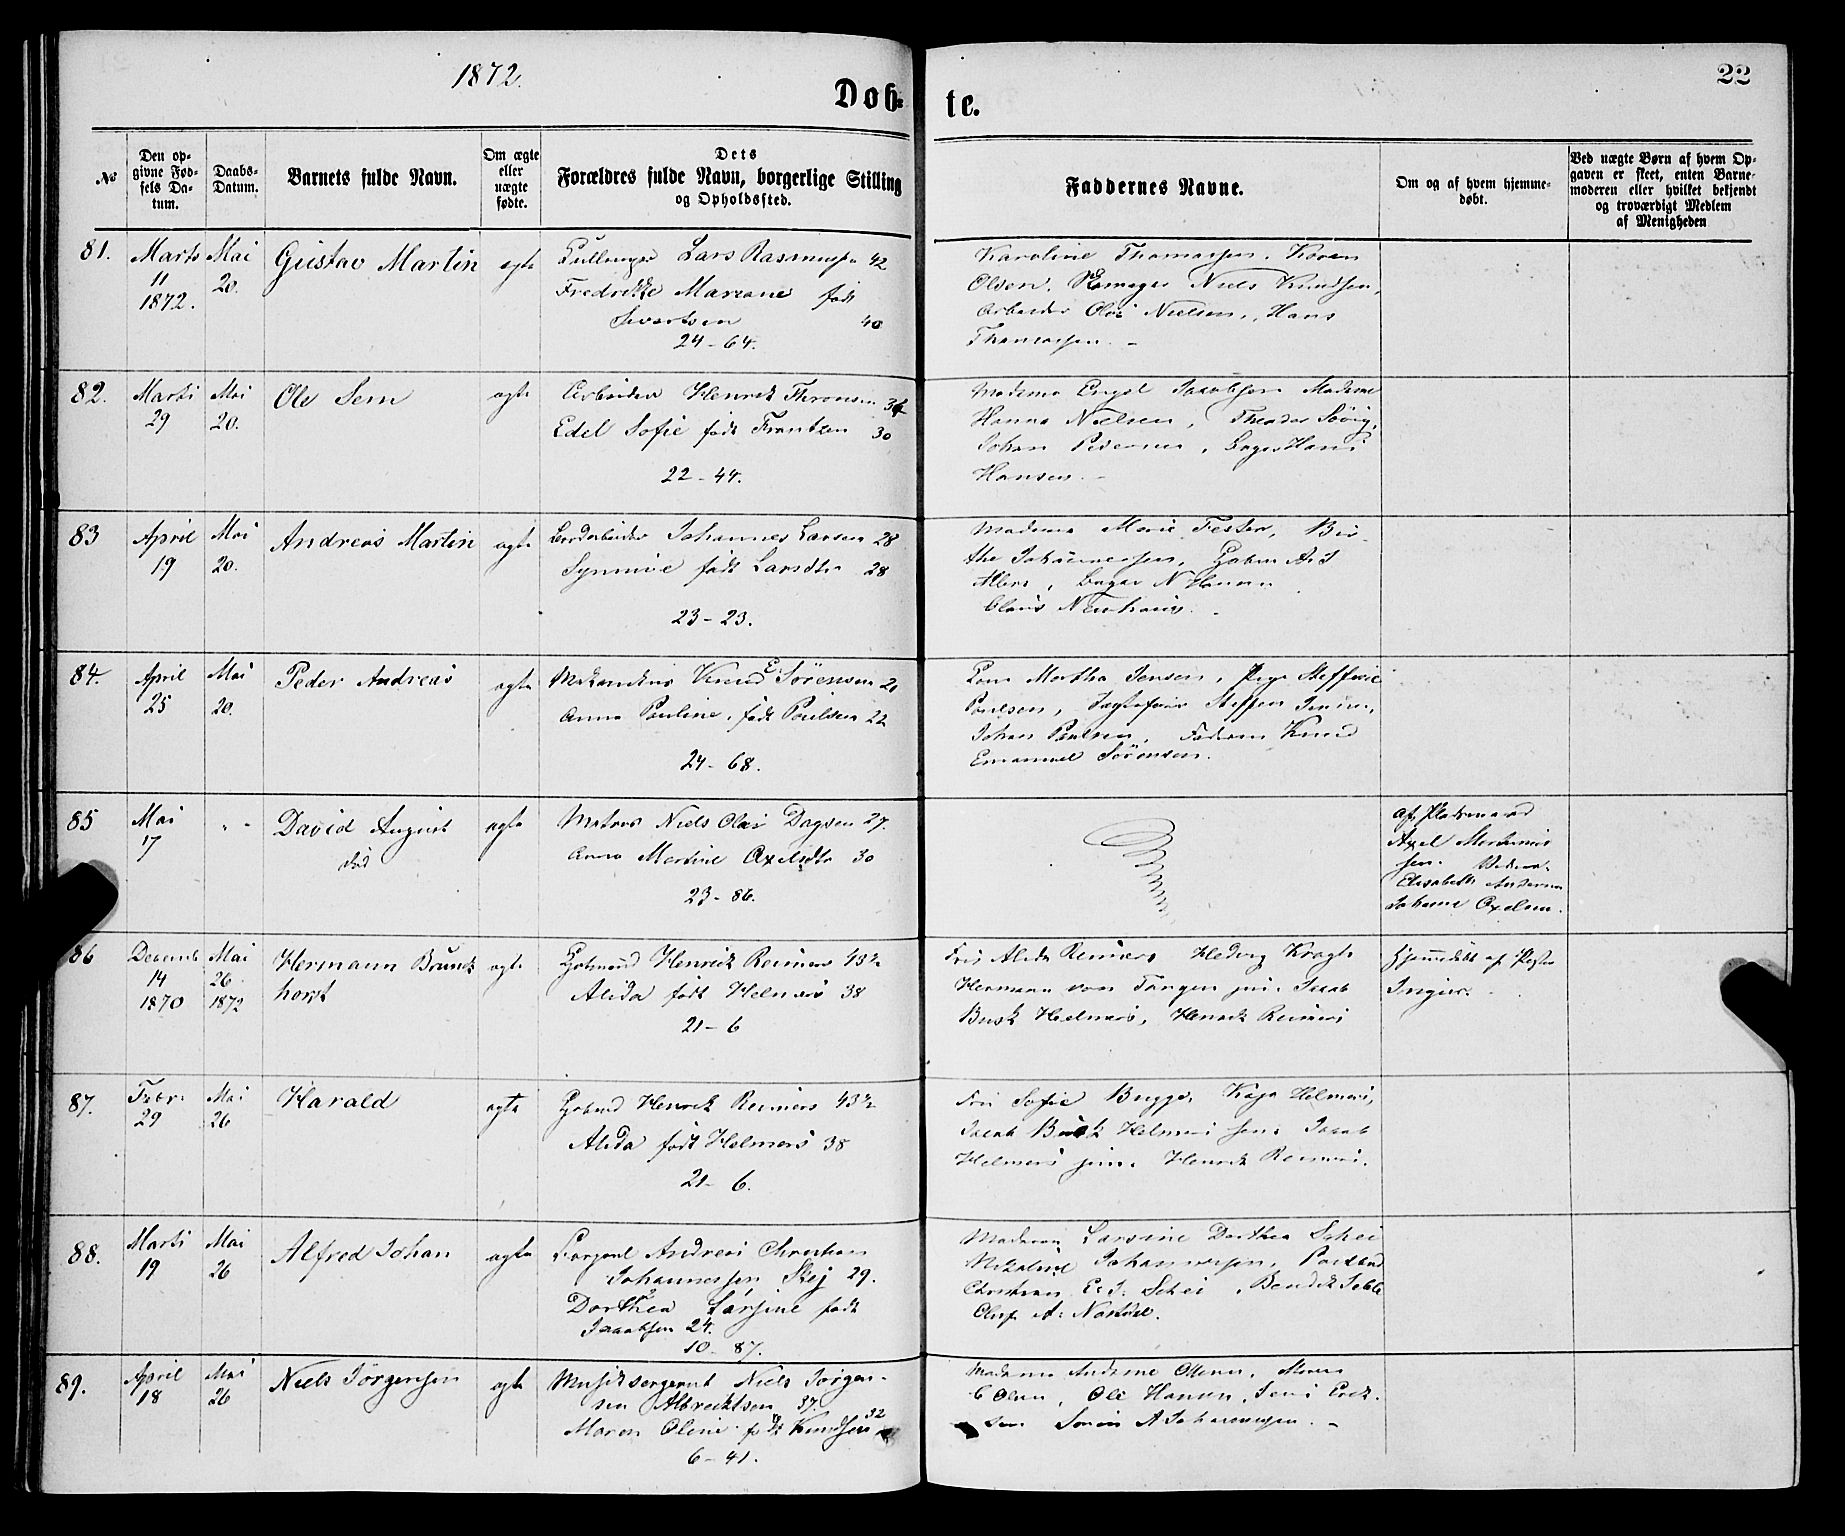 1872.
Döb=
te.
22
No
Den op-
givne Fød-
sels Da-
tum.
Daabs-
Datum.
Barnets fulde Navn.
Om ægte
eller
uægte
fødte.
Dets
Forældres fulde Navn, borgerlige Stilling
og Opholdssted.
Faddernes Navne.
Om og af hvem hjemme-
døbt.
Ved uægte Børn af hvem Op-
gaven er skeet, enten Barne-
moderen eller hvilket bekjendt
og troværdigt Medlem
af Menigheden
81.
Marts
11
1872.
Mai
20.
Gustav Martin
ægte
Lars Rasmusen 42
Fredrikke Mariane født
Sivertsen 40
24-64.
Karoline Thomassen, Karen
Olsen, Niels Knudsen,
Arbeider Ole Nielsen, Hans
Thomassen. -
82.
Marts
29
Mai
20.
Ole Sem
ægte
Arbeider Henrik Thronsen
Edel Sofie født Frantzen 30
22-44.
Madame Engel Jacobsen Madame
Hanna Nielsen, Theodor
Johan Pedersen, Hans
Hansen. -
83
April
19
Mai
20.
Andreas Martin
ægte
Johannes Larsen 28
Synnive født Larsdtr 28
23-23.
Madame Marie Fester, Bir-
the Johannessen,
N Hansen
Claus Neuhaus. -
84.
April
25
Mai
20.
Peder Andreas
ægte
Mekanikus Knud E. Sørensen 21
Anna Pauline, født Poulsen 22
24-68.
Kone Martha Jensen, Pige Steffine
Poulsen, Steffen Jensen,
Johan Poulsen, Faderen Knud
Emanuel Sørensen.
85
Mai
17
" "
David August
død
ægte
Matros Niels Olai Dagsen 27.
Anna Martine Axelsdtr 30
23-86.
af
Axel Mortinus
sen.
Elisabeth Andersen
Johanne Axelsen.
86
Decemb
14
1870
Mai
26
1872
Hermann Brunck
horst
ægte
Henrick Reimers 43½
Alida født Helmers 38
21-6
Alida Reimers Hedvig Kragh
Hermann von Tangen jun. Jacob
Busk Helmers, Henrik Reimers
Hjemmedøbt af Pastor
87.
Febr.
29
Mai
26
Harald
ægte
Henrik Reimers 43½
Alida født Helmers 38
21-6.
Sofie Bugge, Kaja Helmers,
Jacob Busk Helmers sen. Jacob
Helmers jun. Henrik Reimers.
88.
Marts
19
Mai
26
Alfred Johan
ægte
Andreas Christian
Johannessen Skej 29.
Dorthea Larsine født
Jacobsen 24.
10-87.
Madame Larsine Dorthea Schei
Nikoline Johannessen,
Christian Schei, Bendik
Oluf A.
89.
April
18
Mai
26
Niels Jörgensen
ægte
Musiksergeant Niels Jörgen-
sen Albrechtsen 37.
Maren Oline født Knudsen 32
6-41.
Madame Andrine Olsen,
C Olsen, Ole Hansen, Jens Erik-
sen Sören A Johannessen. -